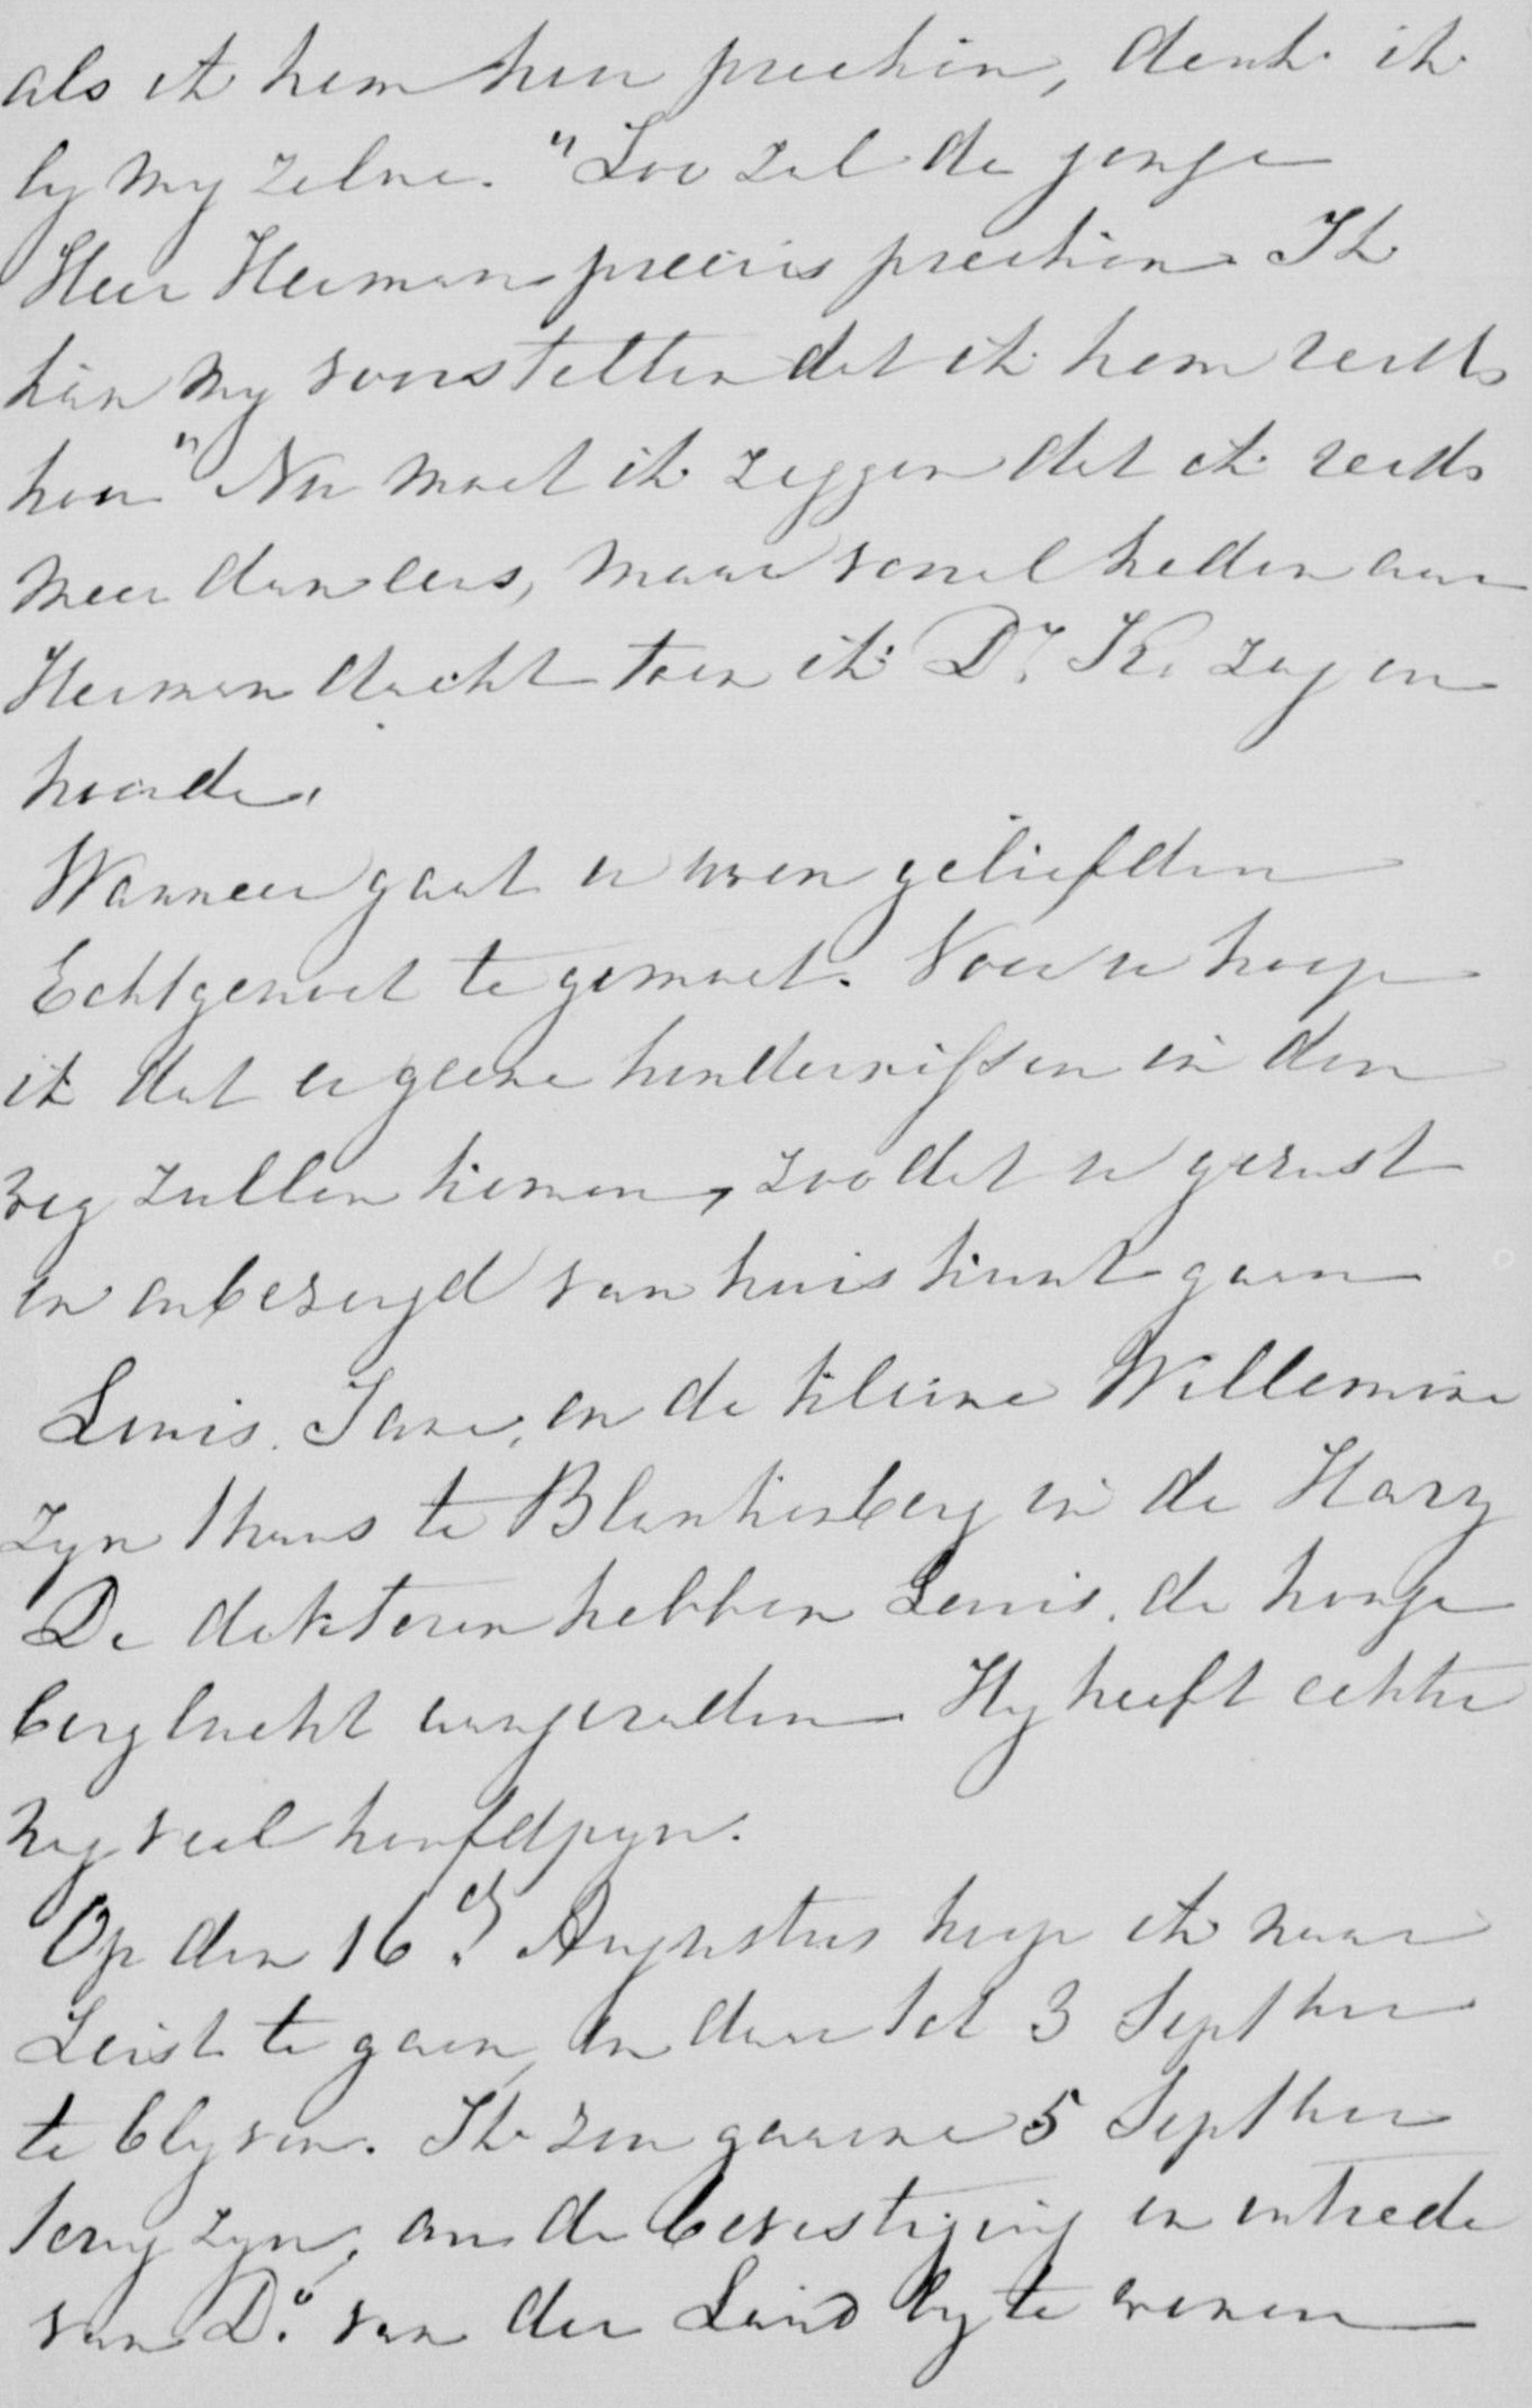 als ik hem hoor preeken, denk ik
by my zelve. "Zoo zal de jonge
Heer Herman precies preeken. Ik
kan my voorstellen dat ik hem reeds
hoor" Nu moet ik zeggen dat ik reeds
meer dan eens, maar vooral heden aan
Herman dacht toen ik Dr. K. zag en
hoorde.
Wanneer gaat u uwen geliefden
Echtgenoot te gemoet. Voor u hoop
ik dat er geene hindernissen in den
weg zullen komen, zoo dat u gerust
en onbezorgd van huis kunt gaan
Louis, Jane, en de kleine Willemine
zyn thans te Blankenberg in de Harz
De dokteren hebben Louis, de hooge
berglucht aangeraden. Hy heeft echter
nog veel hoofdpyn.
Op den 16.de Augustus hoop ik naar
Zeist te gaan, en daar tot 3 Septber
te blyven. Ik zou gaarne 5 Septber
terug zyn, om de bevestiging en intrede
van Ds. van der Lind by te wonen